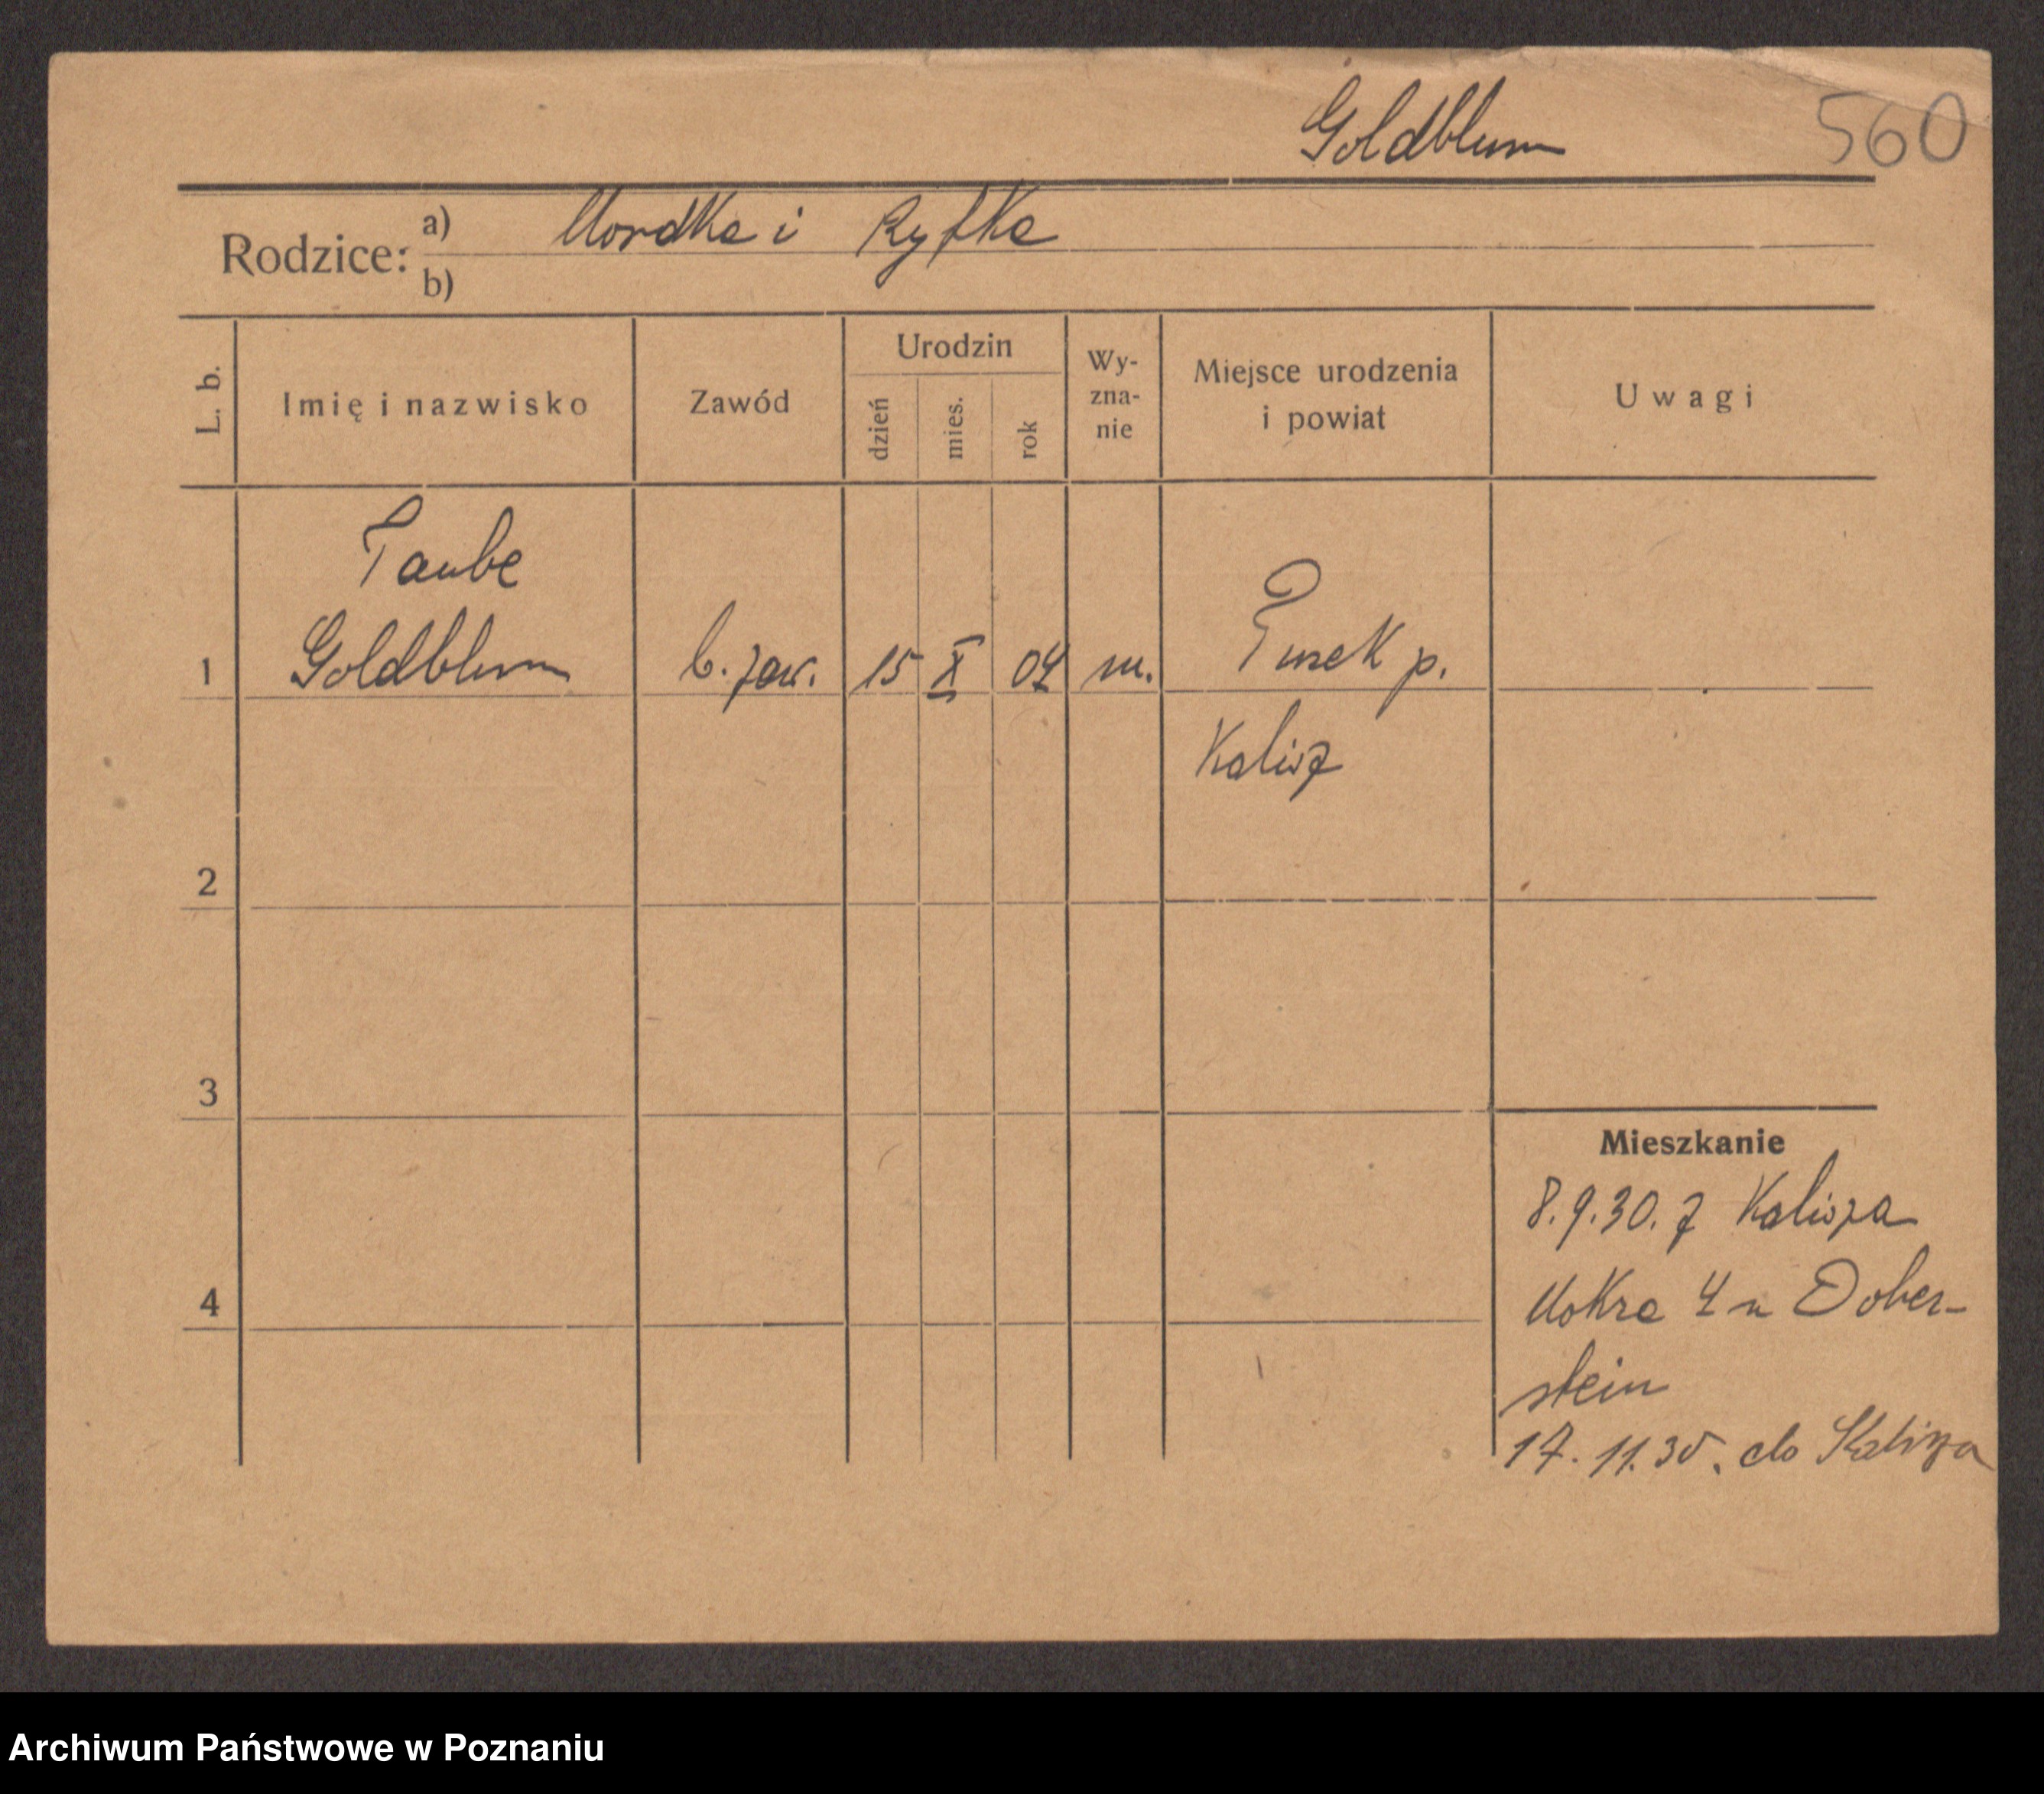 Goldblum 560
Rodzice: a) Mordka i Ryfka
b)
L. b. Imię i nazwisko Zawód Urodzin dzień mies. rok Wy-zna-nie Miejsce urodzenia i powiat Uwagi
Taube
1 Goldblum b. zaw. 15 X 04 m. Turek p.
Kalisz
2
3
Mieszkanie
8.9.30. z Kalisza
4 Mokra 4 u Dober-
stein
17.11.30. do Kalisza
Archiwum Państwowe w Poznaniu